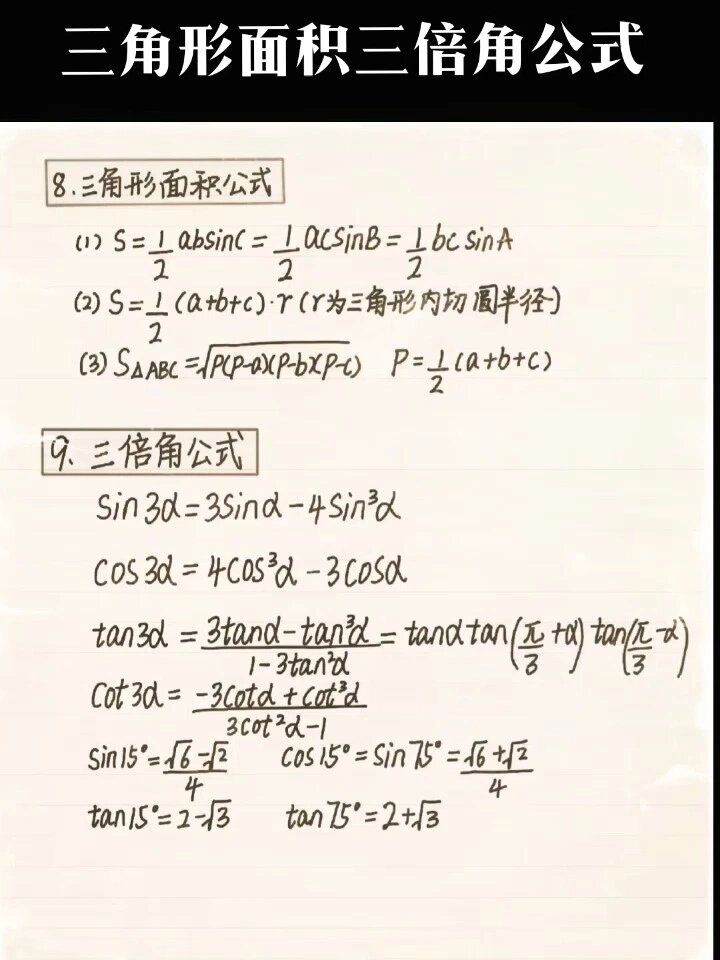 三角形面积三倍角公式
8.三角形面积公式
(1) S=1/2 absinC=1/2 acsinB=1/2 bc sinA
(2) S=1/2 (a+b+c)·r(r为三角形内切圆半径)
(3) S△ABC=√P(P-a)(P-b)(P-c) P=1/2(a+b+c)
9.三倍角公式
sin3α=3sinα-4sin³α
cos3α=4cos³α-3cosα
tan3α=3tanα-tan³α/1-3tan²α=tanαtan(π/3+α)tan(π/3-α)
cot3α=-3cotα+cot³α/3cot²α-1
sin15°=√6-√2/4 cos15°=sin75°=√6+√2/4
tan15°=2-√3 tan75°=2+√3